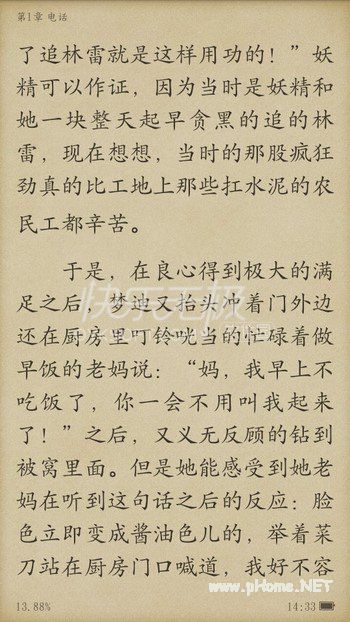 第1章 电话
了追林雷就是这样用功的！”妖
精可以作证，因为当时是妖精和
她一块整天起早贪黑的追的林
雷，现在想想，当时的那股疯狂
劲真的比工地上那些扛水泥的农
民工都辛苦。
于是，在良心得到极大的满
足之后，梦迪又抬头冲着门外边
还在厨房里叮铃咣当的忙碌着做
早饭的老妈说：“妈，我早上不
吃饭了，你一会不用叫我起来
了！”之后，又义无反顾的钻到
被窝里面。但是她能感受到她老
妈在听到这句话之后的反应：脸
色立即变成酱油色儿的，举着菜
刀站在厨房门口喊道，我好不容
www.pHome.NET
13.88%
14:33